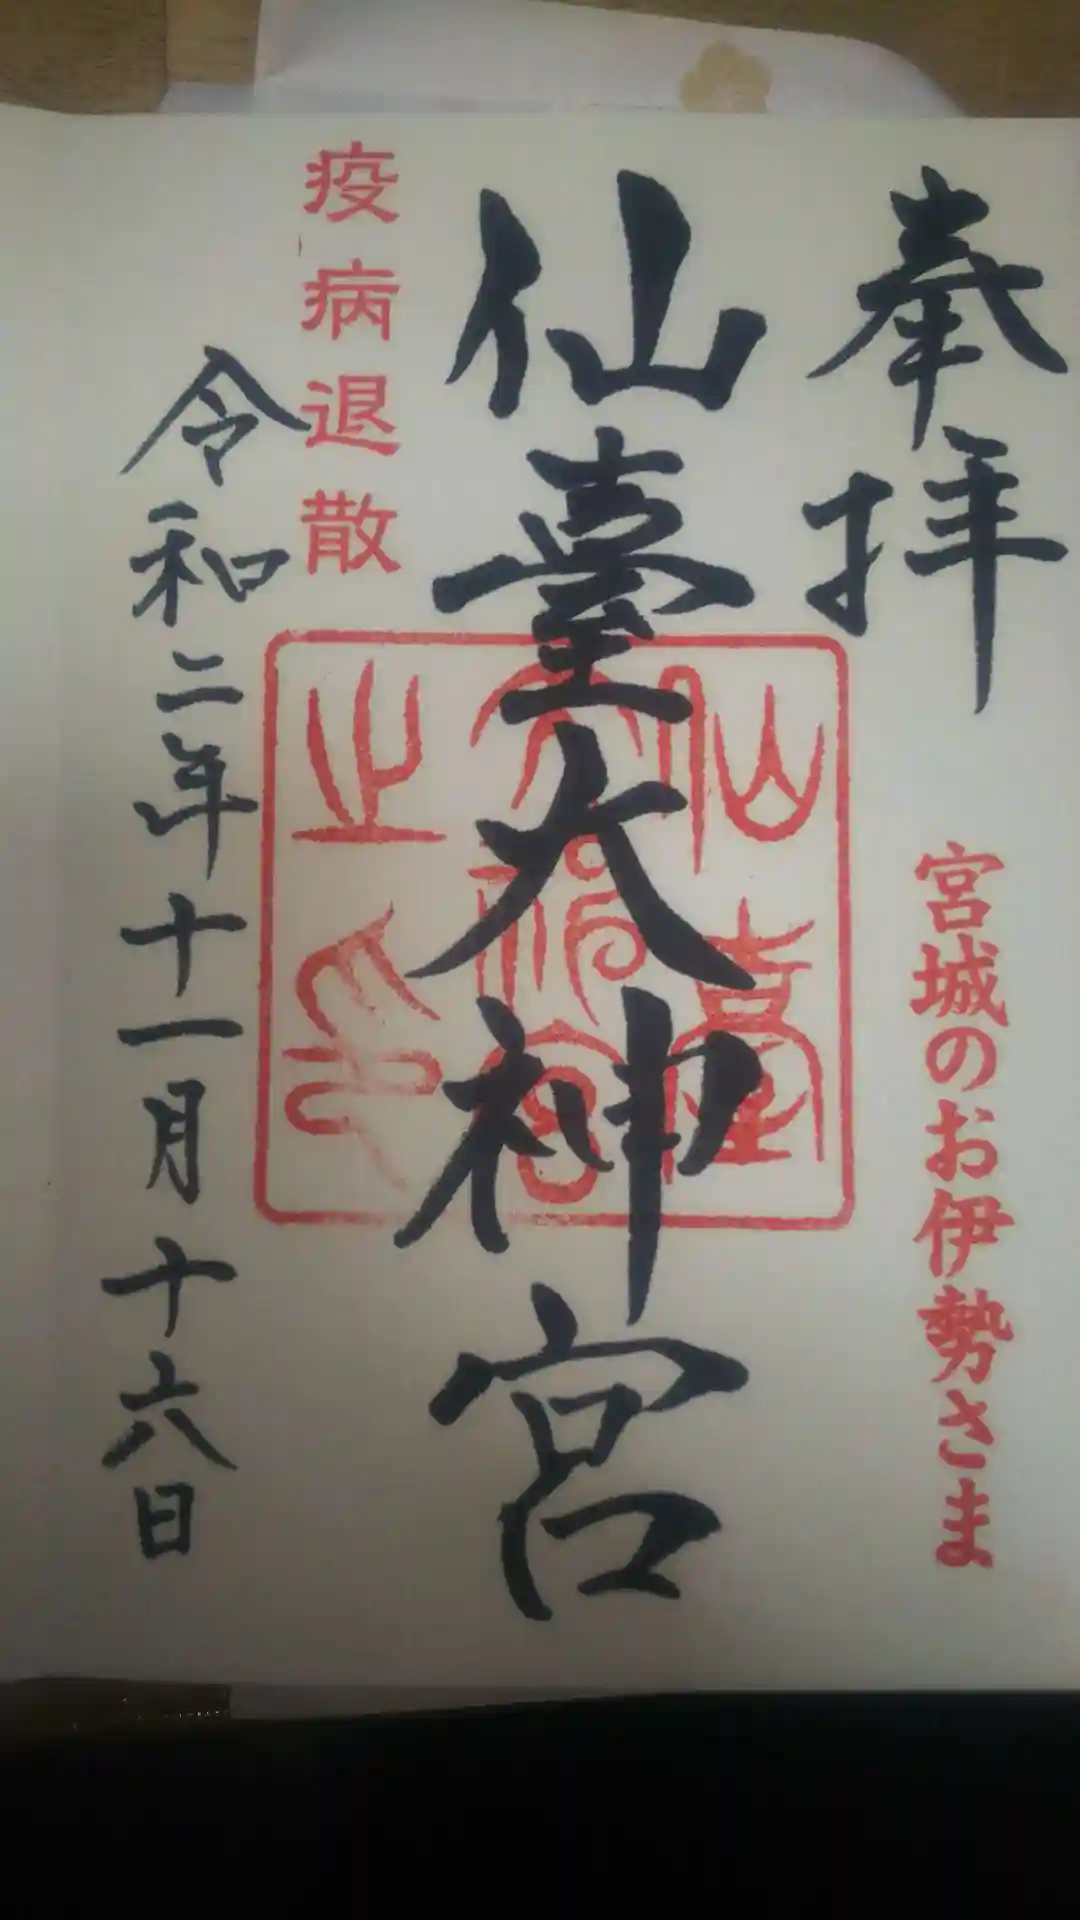 奉拝
宮城のお伊勢さま
仙臺大神宮
仙臺
大神宮
之印
疫病退散
令和二年十一月十六日